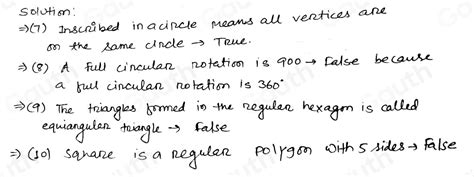 Solution:
⇒ (7) Inscribed in a circle means all vertices are
on the same circle → True.
⇒ (8) A full circular rotation is 900 → False because
a full circular rotation is 360°
⇒ (9) The triangles formed in the regular hexagon is called
equiangular triangle → False
⇒ (10) Square is a regular polygon with 5 sides → False